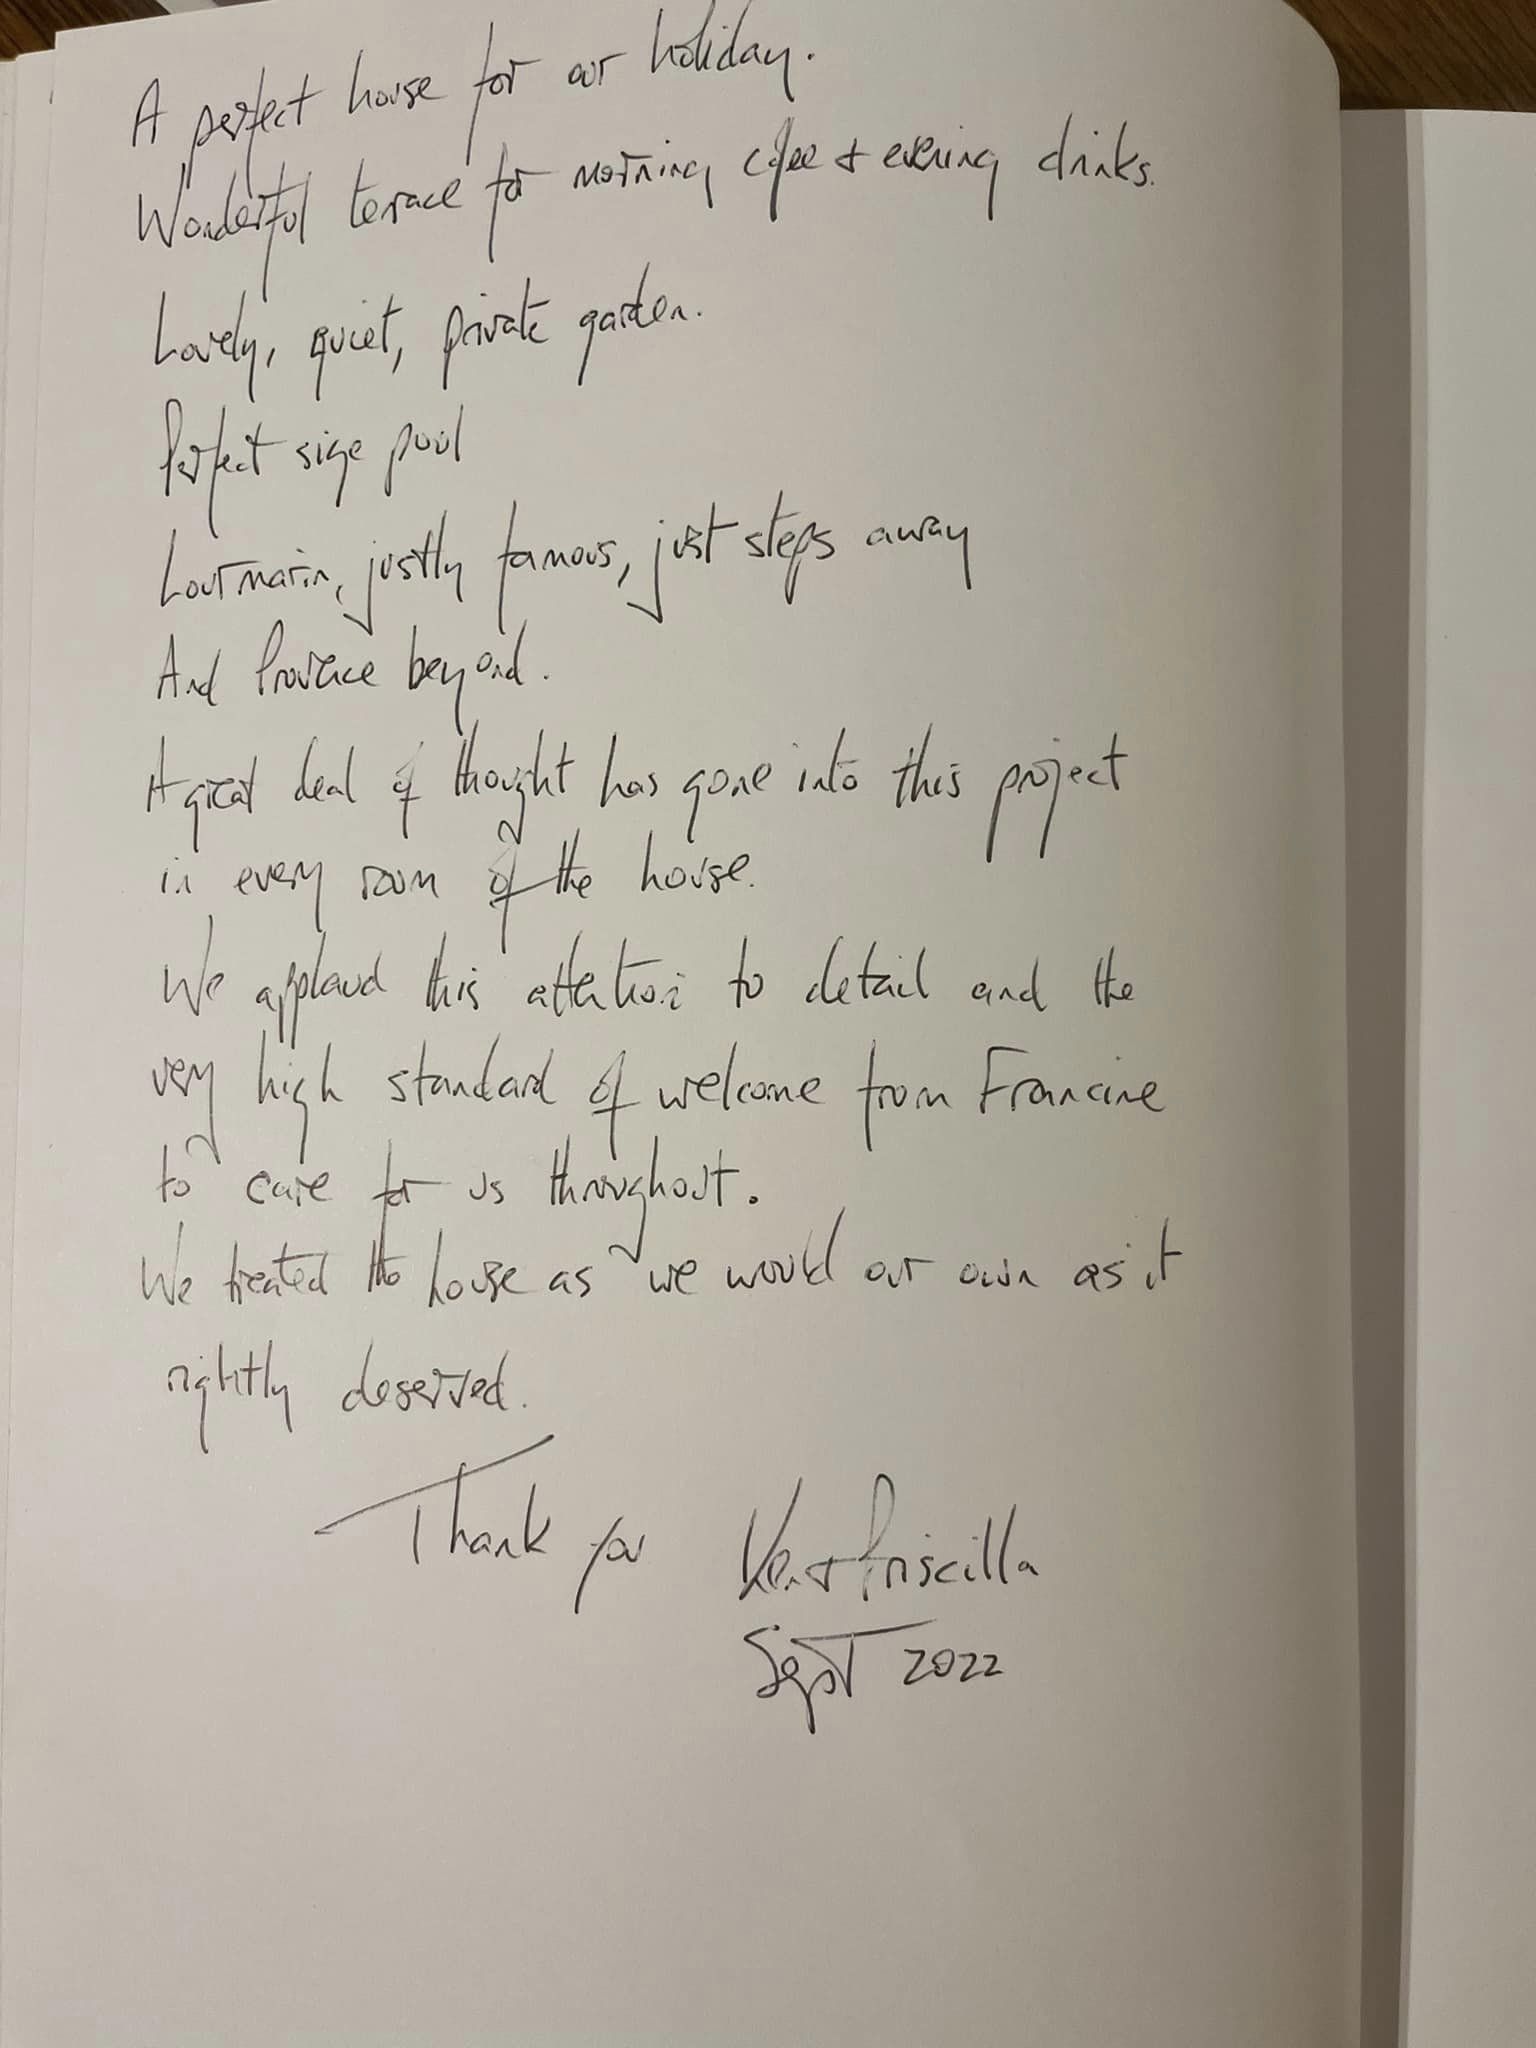 A perfect house for our holiday.
Wonderful terrace for morning coffee + evening drinks.
Lovely, quiet, private garden.
Perfect size pool
Lourmarin, justly famous, just steps away
And Provence beyond.
A great deal of thought has gone into this project
in every room of the house.
We applaud this attention to detail and the
very high standard of welcome from Francine
to care for us throughout.
We treated the house as we would our own as it
rightly deserved.
Thank you Ken + Priscilla
Sept 2022